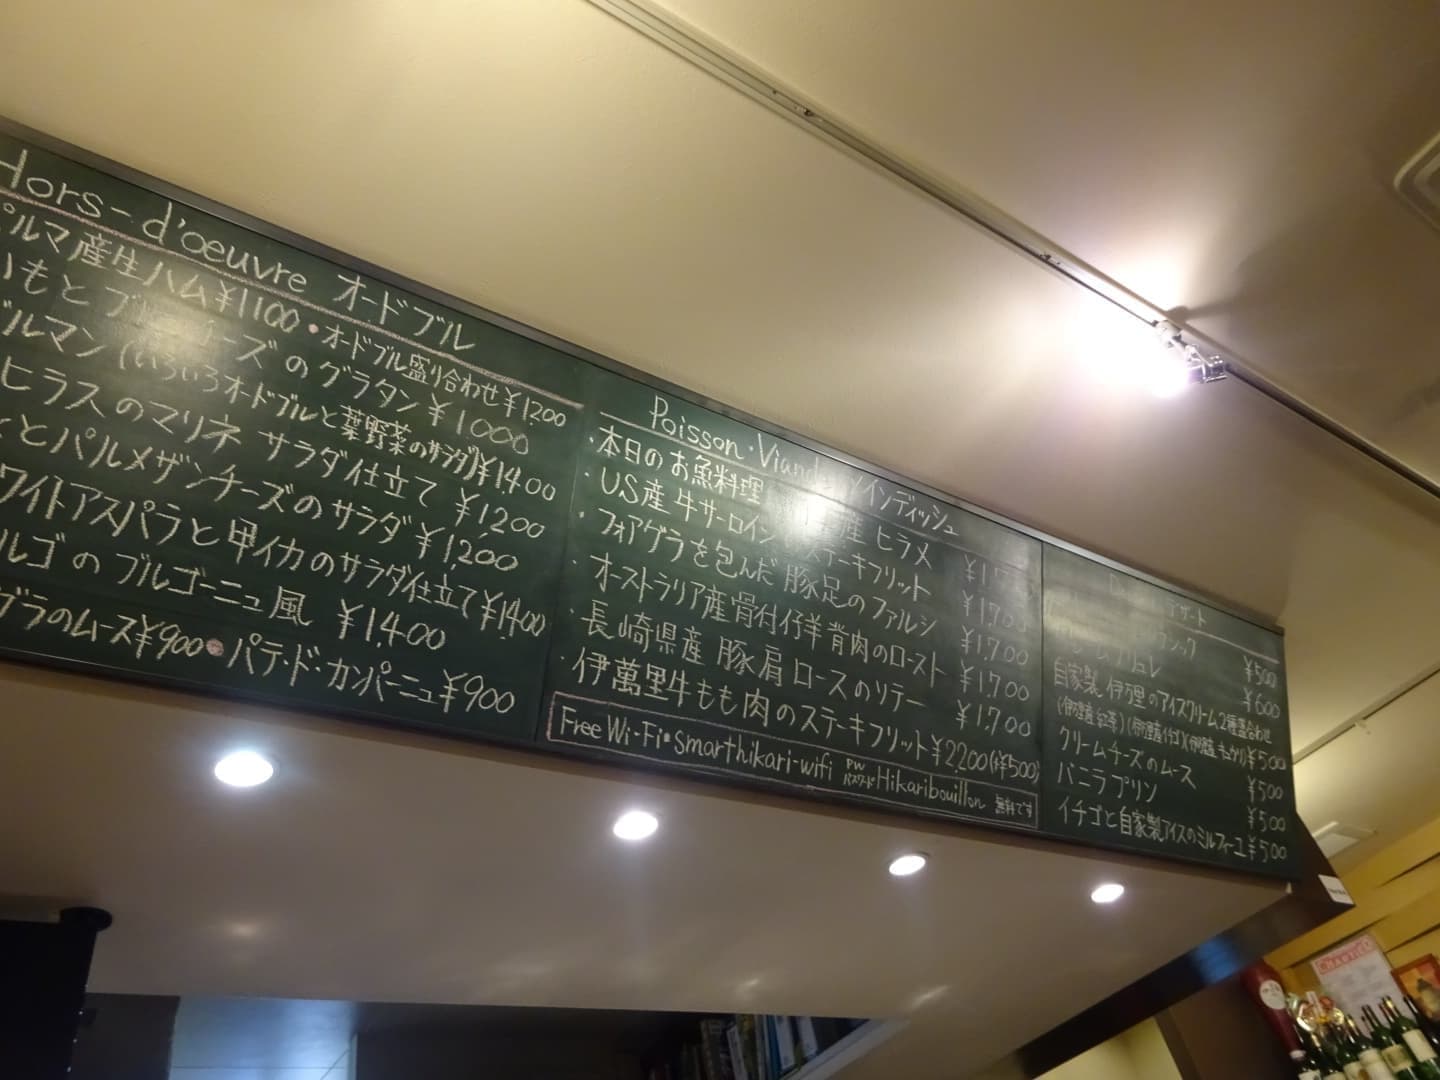 Hors-d'oeuvre オードブル
パルマ産生ハム ¥1100 ・オードブル盛り合わせ ¥1200
いもとブルーチーズのグラタン ¥1000
マン(いろいろオードブルと葉野菜のサラダ)¥1,400
ヒラスのマリネ サラダ仕立て ¥1,200
とパルメザンチーズのサラダ ¥1,200
ワイトアスパラと甲イカのサラダ仕立て ¥1,400
ルゴのブルゴーニュ風 ¥1,400
グラのムース ¥900 ・パテ・ド・カンパーニュ ¥900
Poisson・Viande メインディッシュ
・本日のお魚料理 産 ヒラメ
・US産牛サーロイン ステーキフリット ¥1,700
・フォアグラを包んだ豚足のファルシ ¥1,700
・オーストラリア産骨付仔羊背肉のロースト ¥1,700
・長崎県産豚肩ロースのソテー ¥1,700
・伊萬里牛もも肉のステーキフリット ¥2,200(+¥500)
Free Wi-Fi・smarthikari-wifi PW パスワード Hikaribouillon 無料です
デザート
¥500
ブリュレ ¥600
自家製 伊万里のアイスクリーム2種盛合わせ
¥500
クリームチーズのムース ¥500
バニラプリン ¥500
イチゴと自家製アイスのミルフィーユ ¥500